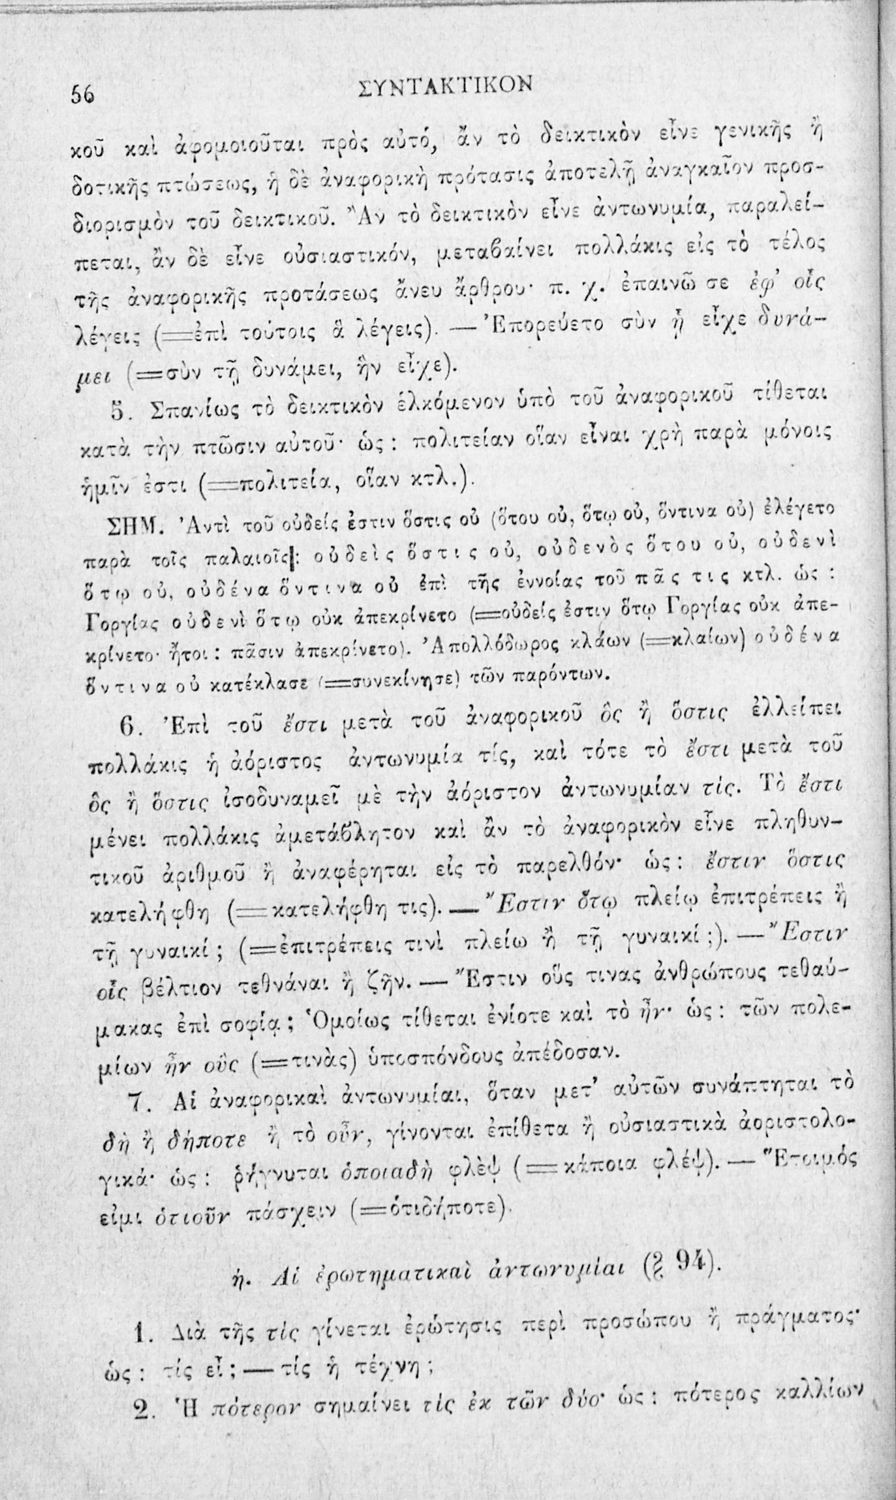 56 ΣΥΝΤΑΚΤΙΚΟΝ
κοῦ καὶ ἀφομοιοῦται πρὸς αὐτό, ἂν τὸ δεικτικὸν εἶνε γενικῆς ἢ
δοτικῆς πτώσεως, ἡ δὲ ἀναφορικὴ πρότασις ἀποτελῇ ἀναγκαῖον προσ-
διορισμὸν τοῦ δεικτικοῦ. Ἂν τὸ δεικτικὸν εἶνε ἀντωνυμία, παραλεί-
πεται, ἂν δὲ εἶνε οὐσιαστικόν, μεταβαίνει πολλάκις εἰς τὸ τέλος
τῆς ἀναφορικῆς προτάσεως ἄνευ ἄρθρου· π. χ. ἐπαινῶ σε ἐφ’ οἷς
λέγεις (=ἐπὶ τούτοις ἃ λέγεις). — Ἐπορεύετο σὺν ᾗ εἶχε δυνά-
μει (=σὺν τῇ δυνάμει, ἣν εἶχε).
5. Σπανίως τὸ δεικτικὸν ἑλκόμενον ὑπὸ τοῦ ἀναφορικοῦ τίθεται
κατὰ τὴν πτῶσιν αὐτοῦ· ὡς : πολιτείαν οἵαν εἶναι χρὴ παρὰ μόνοις
ἡμῖν ἐστι (=πολιτεία, οἵαν κτλ.).
ΣΗΜ. Ἀντὶ τοῦ οὐδείς ἐστιν ὅστις οὐ (ὅτου οὐ, ὅτῳ οὐ, ὅντινα οὐ) ἐλέγετο
παρὰ τοῖς παλαιοῖς: οὐδεὶς ὅστις οὐ, οὐδενὸς ὅτου οὐ, οὐδενὶ
ὅτῳ οὐ, οὐδένα ὅντινα οὐ ἐπὶ τῆς ἐννοίας τοῦ πᾶς τις κτλ. ὡς :
Γοργίας οὐδενὶ ὅτῳ οὐκ ἀπεκρίνετο (=οὐδείς ἐστιν ὅτῳ Γοργίας οὐκ ἀπε-
κρίνετο· ἤτοι : πᾶσιν ἀπεκρίνετο). Ἀπολλόδωρος κλάων (=κλαίων) οὐδένα
ὅντινα οὐ κατέκλασε (=συνεκίνησε) τῶν παρόντων.
6. Ἐπὶ τοῦ ἔστι μετὰ τοῦ ἀναφορικοῦ ὃς ἢ ὅστις ἐλλείπει
πολλάκις ἡ ἀόριστος ἀντωνυμία τίς, καὶ τότε τὸ ἔστι μετὰ τοῦ
ὃς ἢ ὅστις ἰσοδυναμεῖ μὲ τὴν ἀόριστον ἀντωνυμίαν τίς. Τὸ ἔστι
μένει πολλάκις ἀμετάβλητον καὶ ἂν τὸ ἀναφορικὸν εἶνε πληθυν-
τικοῦ ἀριθμοῦ ἢ ἀναφέρηται εἰς τὸ παρελθόν· ὡς : ἔστιν ὅστις
κατελήφθη (=κατελήφθη τις). — Ἔστιν ὅτῳ πλείω ἐπιτρέπεις ἢ
τῇ γυναικί ; (=ἐπιτρέπεις τινὶ πλείω ἢ τῇ γυναικί ;). — Ἔστιν
οἷς βέλτιον τεθνάναι ἢ ζῆν. — Ἔστιν οὕς τινας ἀνθρώπους τεθαύ-
μακας ἐπὶ σοφίᾳ ; Ὁμοίως τίθεται ἐνίοτε καὶ τὸ ἦν· ὡς : τῶν πολε-
μίων ἦν οὓς (=τινὰς) ὑποσπόνδους ἀπέδοσαν.
7. Αἱ ἀναφορικαὶ ἀντωνυμίαι, ὅταν μετ’ αὐτῶν συνάπτηται τὸ
δὴ ἢ δήποτε ἢ τὸ οὖν, γίνονται ἐπίθετα ἢ οὐσιαστικὰ ἀοριστολο-
γικά· ὡς : ῥήγνυται ὁποιαδὴ φλὲψ (=κάποια φλέψ). — Ἕτοιμός
εἰμι ὁτιοῦν πάσχειν (=ὁτιδήποτε).
ή. Αἱ ἐρωτηματικαὶ ἀντωνυμίαι (§ 94).
1. Διὰ τῆς τίς γίνεται ἐρώτησις περὶ προσώπου ἢ πράγματος·
ὡς : τίς εἶ ; — τίς ἡ τέχνη ;
2. Ἡ πότερον σημαίνει τίς ἐκ τῶν δύο· ὡς : πότερος καλλίων